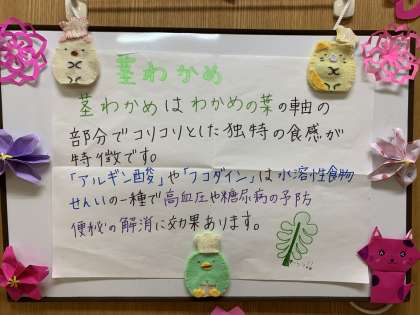 茎わかめ
茎わかめはわかめの葉の軸の
部分でコリコリとした独特の食感が
特徴です。
「アルギン酸」や「フコダイン」は水溶性食物
せんいの一種で高血圧や糖尿病の予防
便秘の解消に効果あります。